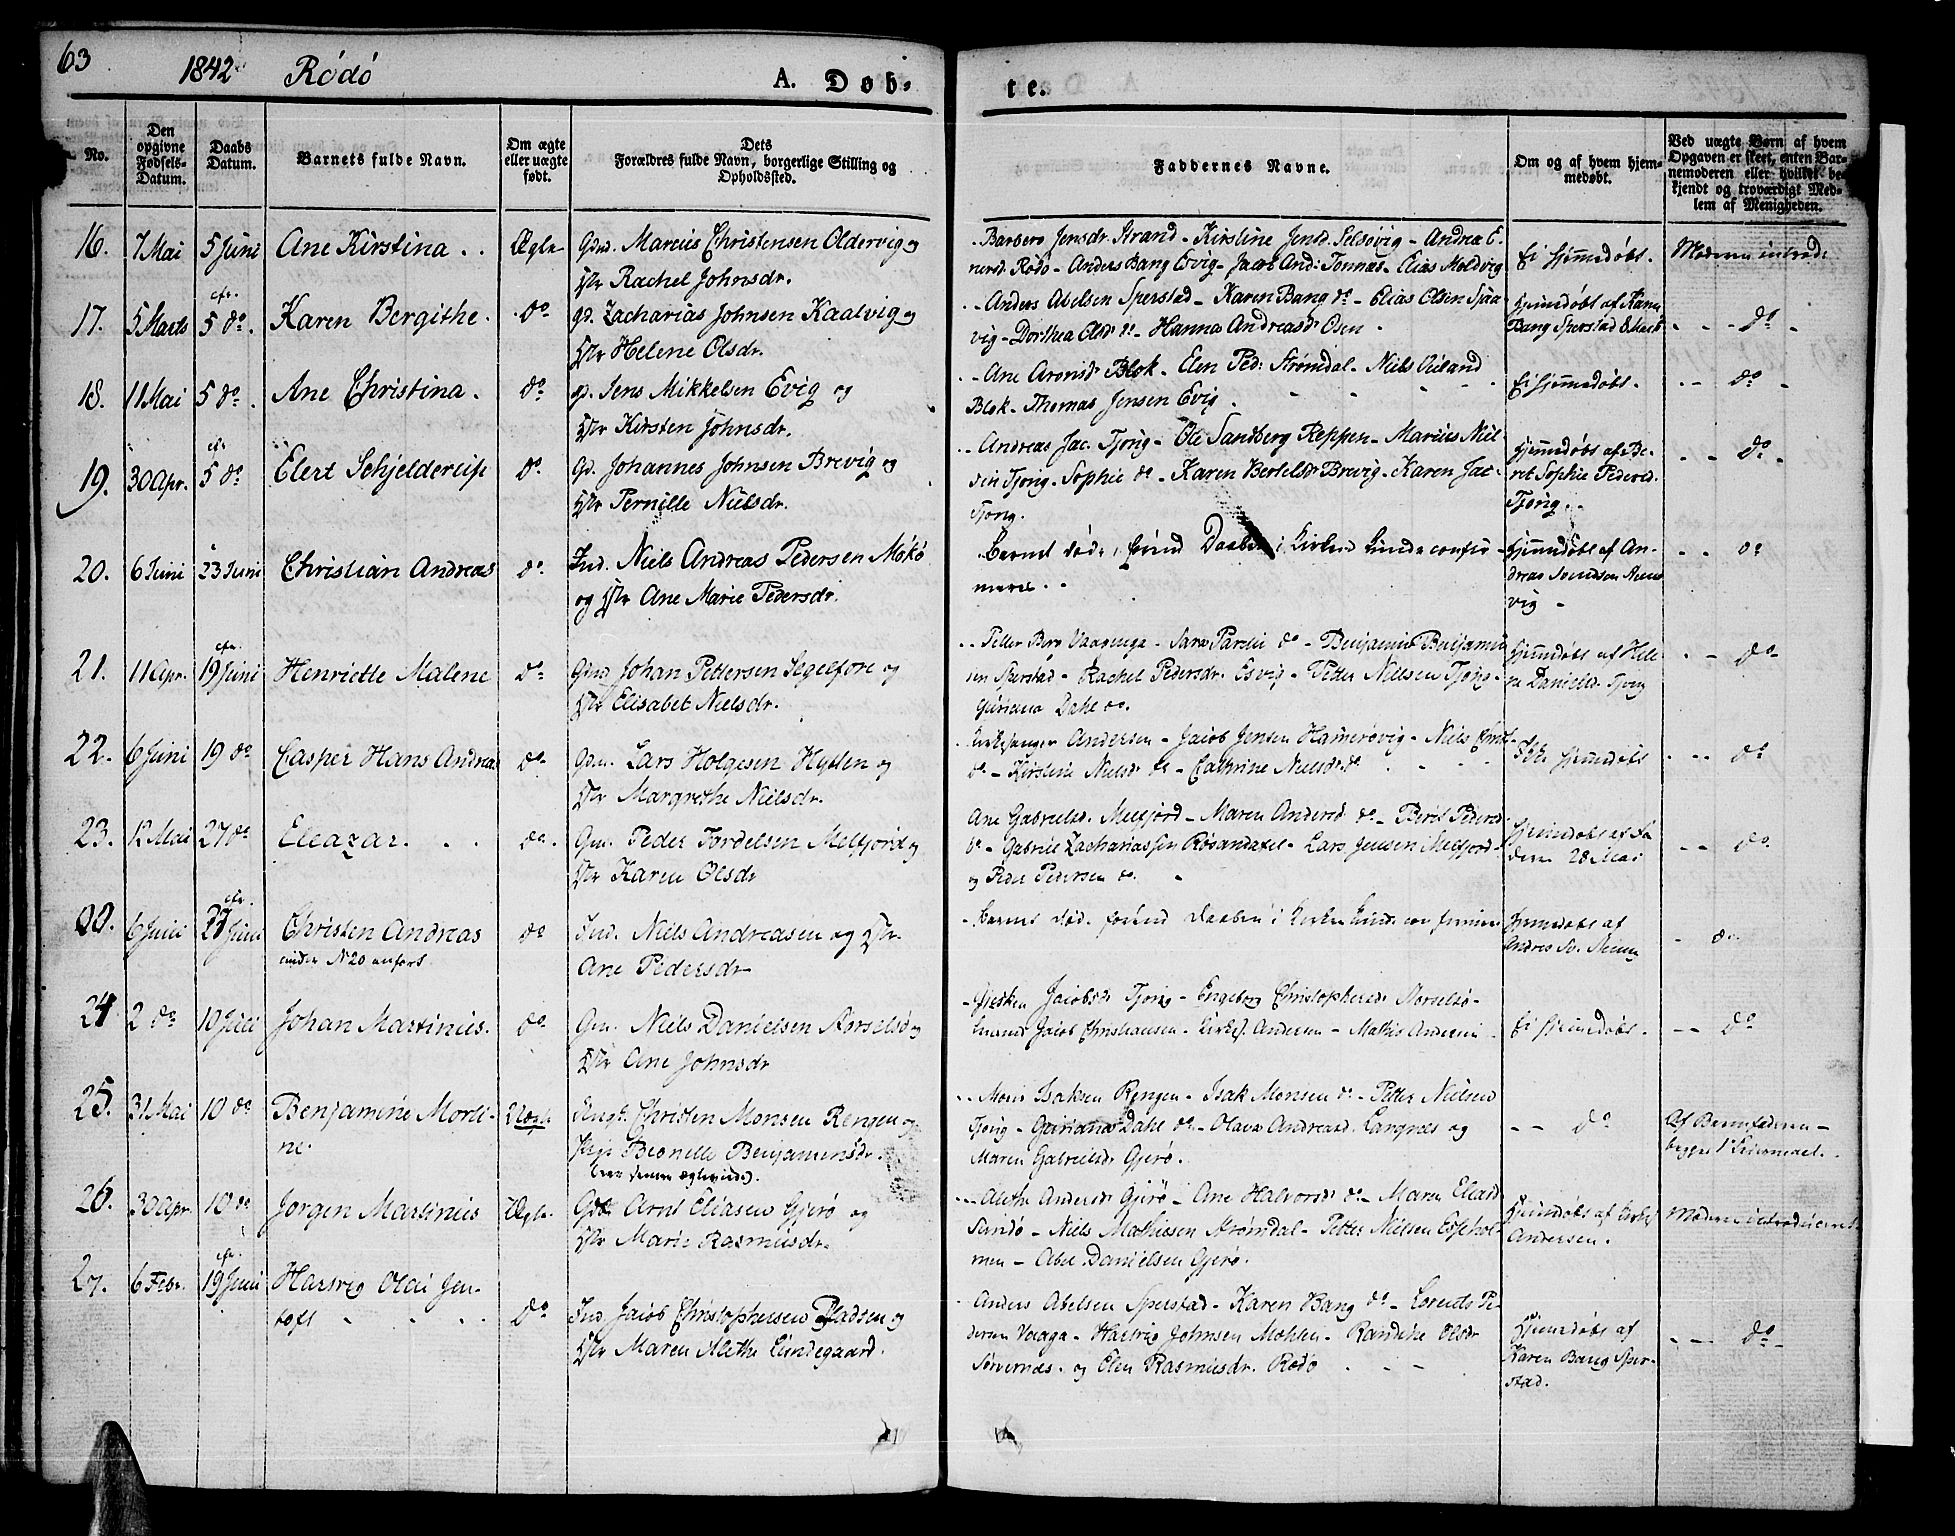 63
1842 Rödö
A. Døb-
te.
No.
Den opgivne Fødsels-Datum.
Daabs Datum.
Barnets fulde Navn.
Om ægte eller uægte født.
Dets Forældres fulde Navn, borgerlige Stilling og Opholdssted.
Faddernes Navne.
Om og af hvem hjem-medøbt.
Ved uægte Børn af hvem Opgaven er skeet, enten Bar-nemoderen eller hvilket be-kjendt og troværdigt Med-lem af Menigheden.
16. 7 Mai 5 Juni Ane Kirstina . . Ægte Gdm. Marcus Christensen Oldervig og
Hstr Rachel Johnsdr.
Barbero Jensdr. Strand - Kirstine Jensd. Selsövig - Andrea E-
nersd. Rödö - Anders Bang Esvig - Jacob And. Tonnæs - Elias Moldvig
Ei hjemmedöbt.
Moderen introd.
17. 5 Marts cfr. 5 do. Karen Bergithe. do gd. Zacharias Johnsen Kaalvig og
Hstr Helene Olsdr.
Anders Abelsen Sperstad - Karen Bang do - Elias Olsen Sjaa
vig - Dorthea Olsdr do - Hanna Andreasdr Osen
Hjemmedöbt af Karen
Bang Sperstad 8 Marts
do
18. 11 Mai 5 do. Ane Christina. do gd. Jens Mikkelsen Evig og
Hstr Kirsten Johnsdr.
Ane Aronsdr Blok - Elen Ped. Strömdal - Niels
Blok - Thomas Jensen Evig.
Ei hjemmedöbt.
do
19. 30 Apr. cfr 5 do Elert Schjelderup do. Gd. Johannes Johnsen Brevig og
Hstr Pernille Nielsdr.
Andreas Jac. Tjong - Ole Sandberg Reppen - Marius Niel-
sen Tjong - Sophie do - Karen Bertelsdr Brevig - Karen Jac-
Tjong.
Hjemmedöbt af Be-
ret Sophie Pedersd.
Tjong.
do
20. 6 Juni 23 Juni Christian Andreas do. Ind. Niels Andreas Pedersen Mökö
og Hstr Ane Marie Pedersdr.
Barnet död, forend Daaben i Kirken kunde confir-
meres.
Hjemmedöbt af An-
dreas Svendsen
vig
do
21. 11 Apr. cfr. 19 Juni Henriette Malene do Gdmd Johan Pettersen Segelfore og
Hstr Elisabet Nielsdr.
Petter Borg Vaagenga - Sara do - Benjamin Benjamin
sen Sperstad - Rachel Pedersdr. Esvig - Peter Nielsen Tjong -
Guriana Dahl do.
Hjemmedöbt af Hele-
na Danielsd. Tjong
do
22. 6 Juni 19 do Casper Hans Andreas do Gdm. Lars Holgesen Hytten og
Hstr Margrethe Nielsdr.
Kirkesanger Andersen - Jacob Jensen Hamerövig - Niels
do - Kirstine Nielsdr do - Cathrine Nielsdr do.
Ikke hjemmedöbt
do
23. 12 Mai 27 do Eleazar. . . do. Gm. Peder Tordelsen Melfjord og
Hstr Karen Olsdr
Ane Gabrielsd. Melfjord - Maren Andersd do - Berit Pedersd
do - Gabriel Zachariassen Rösandaxel - Lars Jensen Melfjord
og Peder Pedersen do.
Hjemmedöbt af Fa-
deren 28 Mai
do.
00. 6 Juni cfr. 23 Juni Christen Andreas do Ind. Niels Andreasen og Hstr.
under N 20 anfört. Ane Pedersdr
Barnet död. forend Daaben i Kirken kunde
Hjemmedöbt af
Andreas Sv.
do.
24 2 do 10 Juli Johan Martinus. do. Gm. Niels Danielsen og
Hstr Ane Johnsdr
Jacobsdr Tjong - Engeborg Christophersdr
Jacob Christiansen - Kirkes. Andersen - Mathis Andersen
Ei hjemmedöbt.
do
25. 31 Mai 10 do Benjamine Morti- Uægte Ungk. Christen Monsen Rengen og
ne. Pige Beonelle Benjaminsdr.
Mons Isaksen Rengen - Isak Monsen do - Petter Nielsen
Tjong - Guriana Dahl do - Olava Andreasd. Langnes og
Maren Gabrielsdr Gjerö.
do
Af Barnefaderen -
begges 1ste Leiermaal.
26. 30 Apr. 10 do Jorgen Martinus Ægte. Gdm Arnt Eliasen Gjerö og
Hstr Marie Rasmusdr.
Alethe Andersdr Gjerö - Ane Halvorsdr do - Maren Eliasd
Sandö - Niels Mathiesen Strömdal - Petter Nielsen Espehol-
men - Abel Danielsen Gjerö.
Hjemmedöbt af Kirkes.
Andersen.
Moderen introduceret
27. 6 Febr. cfr. 19 Juni Hartvig Olai Jen-
toft . . . do Ind. Jacob Christophersen Pladsen og
Hstr Maren Alethe Lindegaard.
Anders Abelsen Sperstad - Karen Bang do - Lorents Pe-
dersen Vaaga - Hartvig Johnsen Mæhlen - Randine Olsdr
Sörvernæs - og Elen Rasmusdr. Rödö
Hjemmedöbt af
Karen Bang Sper-
stad.
do